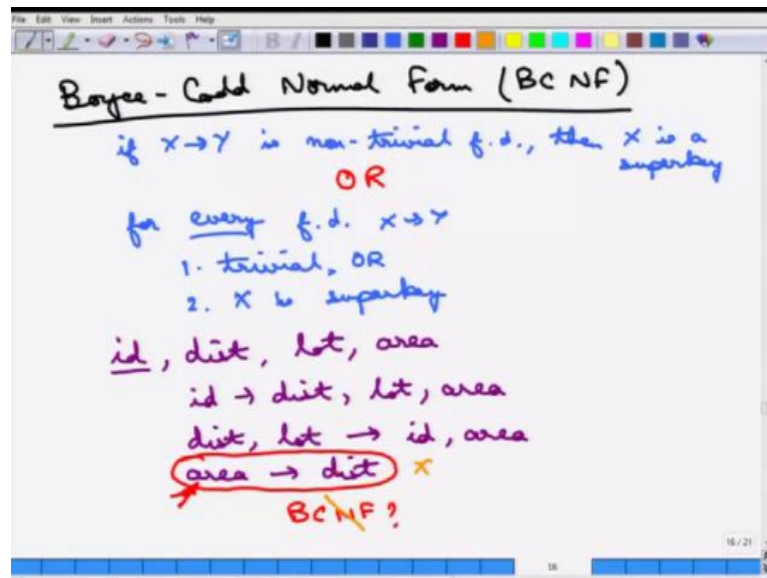 File Edit View Insert Actions Tools Help
Boyce-Codd Normal Form (BCNF)
if X→Y is non-trivial f.d., then X is a
superkey
OR
for every f.d. X→Y
1. trivial, OR
2. X is superkey
id, dist, lot, area
id → dist, lot, area
dist, lot → id, area
area → dist x
BCNF?
16/21
16